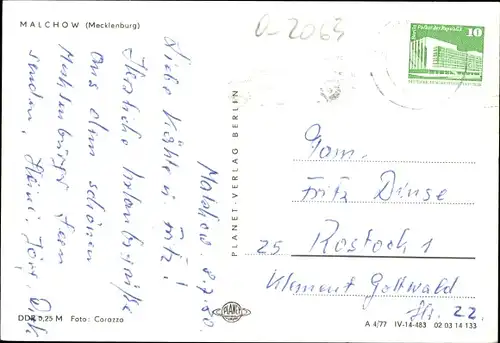 MALCHOW (Mecklenburg)
D-2063
Berlin, Palast der Republik
10
Malchow, 8.7.80.
Liebe Käthe u. Fritz!
Herzliche Urlaubsgrüße
aus dem schönen
Mecklenburger
senden, Heini, Jörg, Dirk
Fam.
Fritz Dinse
25 Rostock 1
Klement Gottwald
Str. 22.
PLANET-VERLAG BERLIN
PLANET
DDR 0,25 M Foto: Corazza
A 4/77 IV-14-483 02 03 14 133